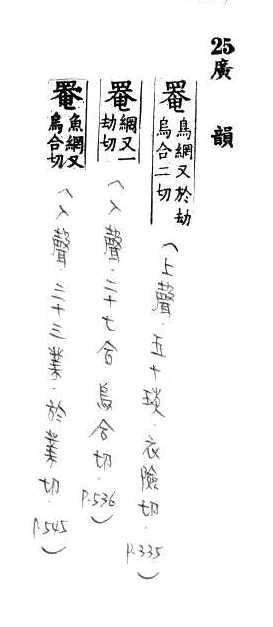 25廣韻
罨鳥網又於劫烏合二切
（上聲．五十琰．衣險切．P.335）
罨網又一劫切
（入聲．二十七合 烏合切．P.536）
罨魚網又烏合切
（入聲．三十三業．於業切．P.545）